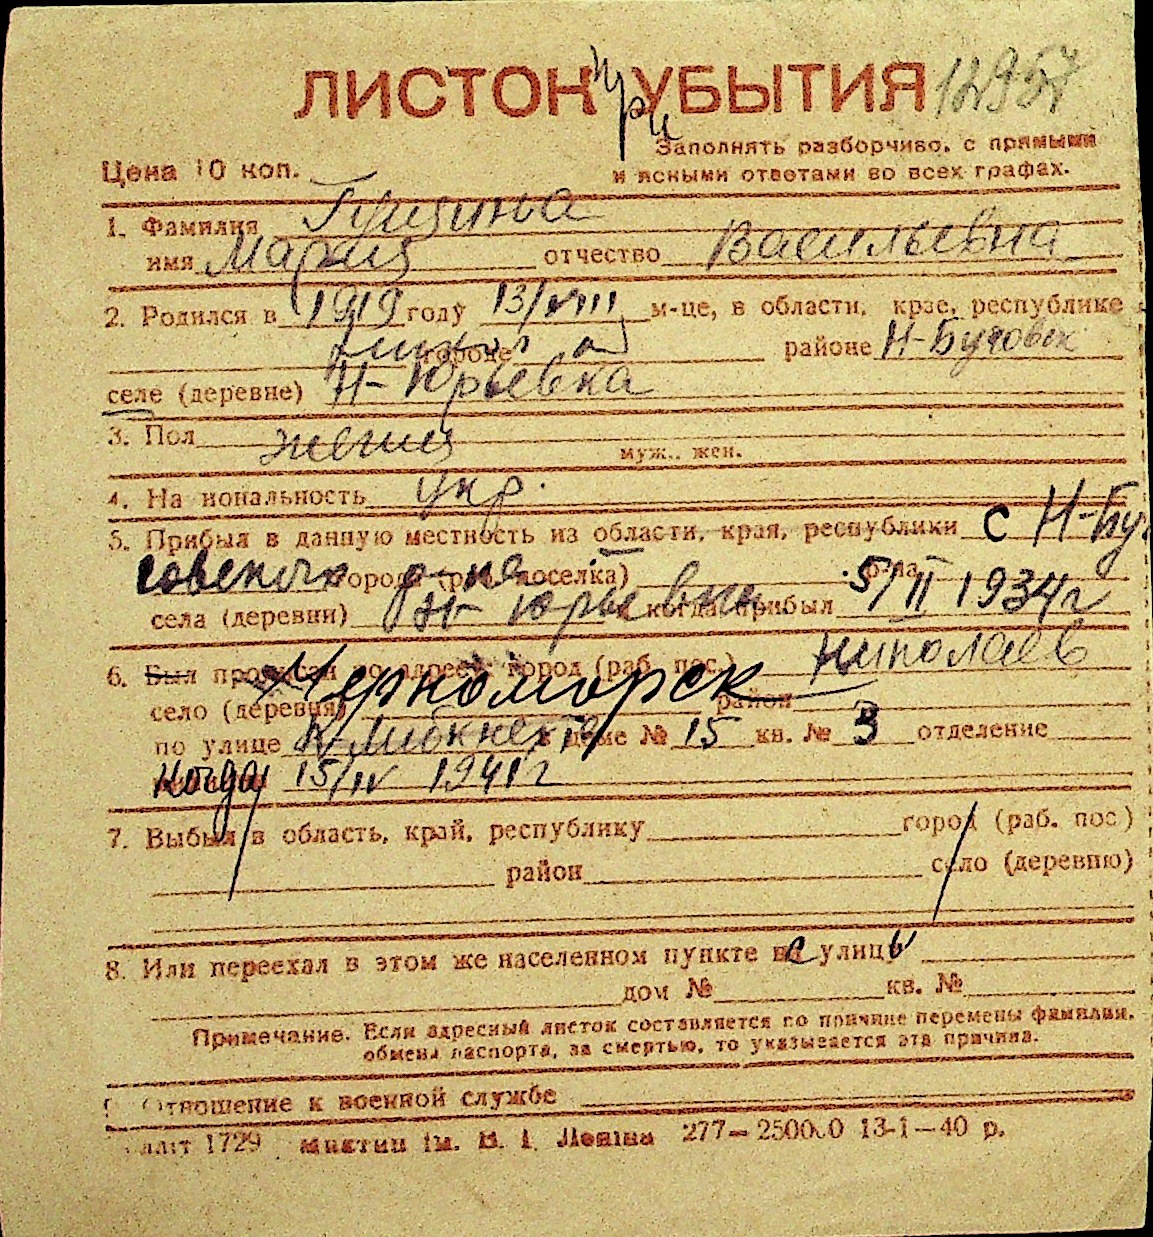 ЛИСТОК при УБЫТИЯ 12957
Заполнять разборчиво, с прямыми
Цена 10 коп. и ясными ответами во всех графах.
1. Фамилия Гущина
имя Мария отчество Васильевна
2. Родился в 1919 году 13/VIII м-це, в области, крае, республике
городе районе Н-Буговск
селе (деревне) Н-Юрьевка
3. Пол женщ муж.. жен.
4. На иональность укр.
5. Прибыл в данную местность из области, края, республики с Н-Буг
совского р-на города (раб. поселка) р-на
села (деревни) Н-Юрьевки когда прибыл 5/II 1934 г
6. Был прописан по адресу: город (раб. пос.) Николаев
село (деревня) Черноморск район
по улице К Либкнехта в доме № 15 кв. № 3 отделение
Когда 15/IV 1941 г
7. Выбыл в область, край, республику город (раб. пос)
район село (деревню)
8. Или переехал в этом же населенном пункте с улицы
дом № кв. №
Примечание. Если адресный листок составляется по причине перемены фамилии,
обмена паспорта, за смертью, то указывается эта причина.
9. Отношение к военной службе
лит 1729 ім. В. І. Леніна 277—250000 13-1—40 р.